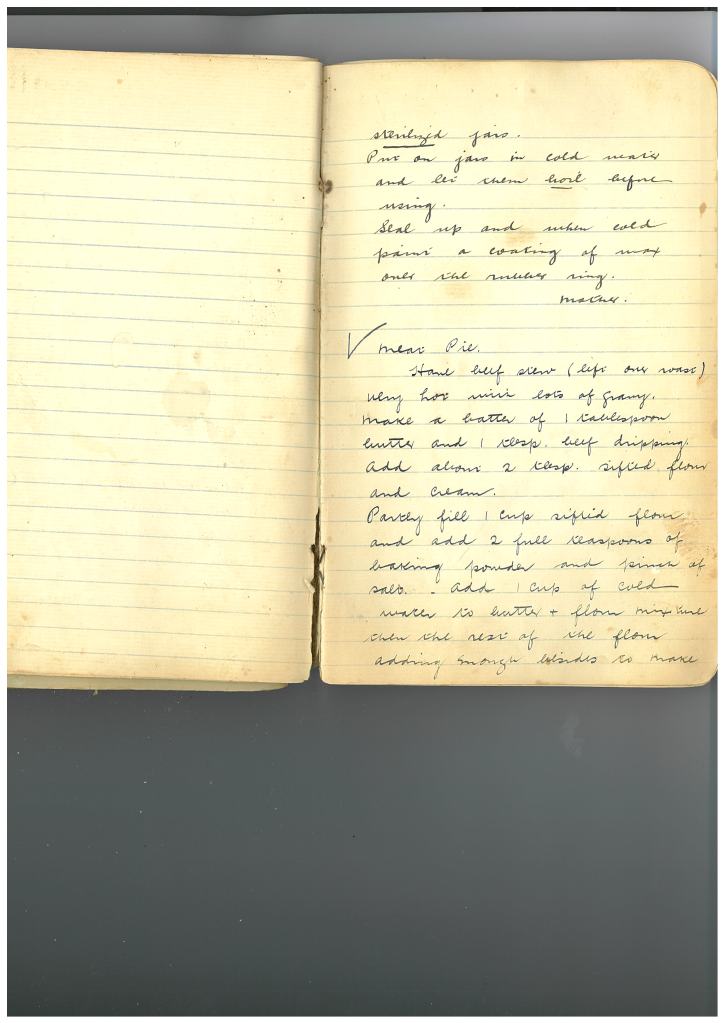 sterilized jars.
Put on jars in cold water
and let them boil before
using.
Seal up and when cold
paint a coating of wax
over the rubber ring.
Mother.
√ Meat Pie.
Have beef stew (left over roast)
very hot with lots of gravy.
Make a batter of 1 tablespoon
butter and 1 tbsp. beef dripping.
Add about 2 tbsp. sifted flour
and cream.
Partly fill 1 cup sifted flour
and add 2 full teaspoons of
baking powder and pinch of
salt. - Add 1 cup of cold
water to butter + flour mixture
then the rest of the flour
adding enough besides to make